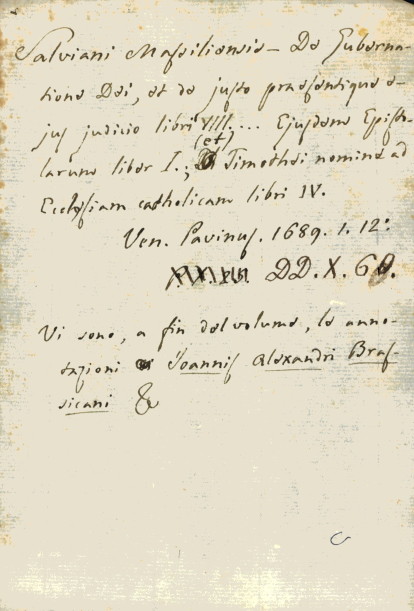 Salviani Massiliensis - De Guberna-
tione Dei, et de justo praesentique e-
jus judicio libri VIII; ... Ejusdem Episto-
larum liber I.; (et) Timothei nomine ad
Ecclesiam catholicam libri IV.
Ven. Pavinus. 1689. 1. 12:
DD. X. 60.
Vi sono, a fin del volume, le anno-
tazioni di Joannis Alexandri Bras-
sicani &